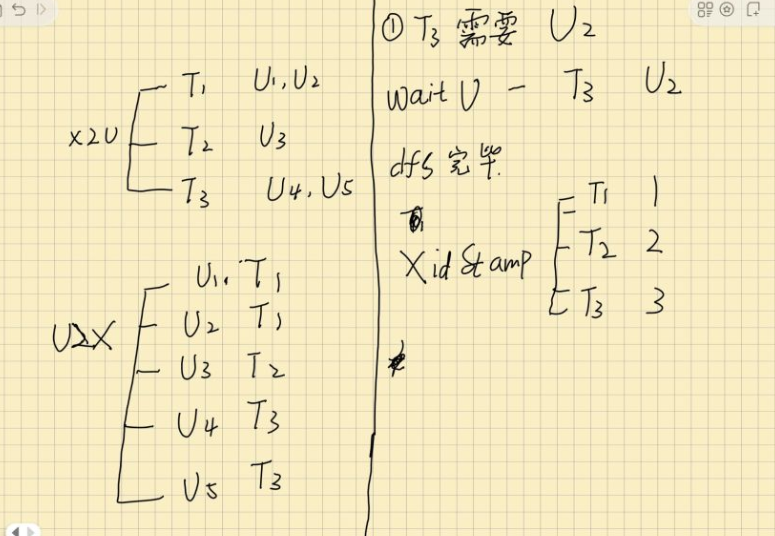 x2U
T1 U1, U2
T2 U3
T3 U4, U5
U2X
U1 T1
U2 T1
U3 T2
U4 T3
U5 T3
① T3 需要 U2
wait U - T3 U2
dfs 完毕
XidStamp
T1 1
T2 2
T3 3